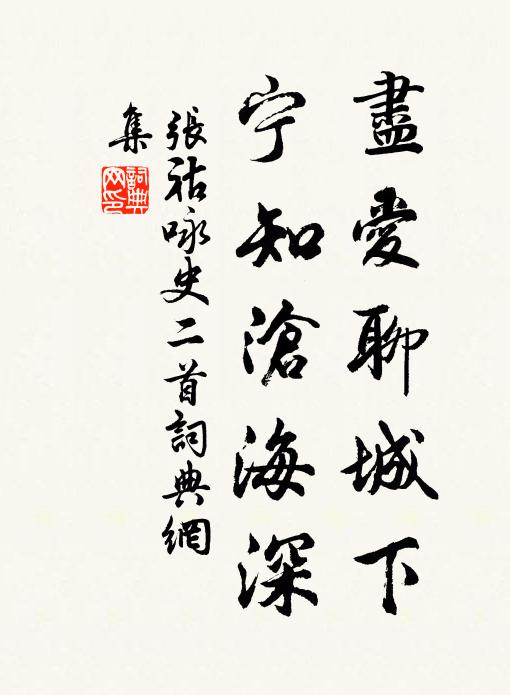 盡愛聊城下
宁知滄海深
張祜咏史二首詞典網
集
詞典網印